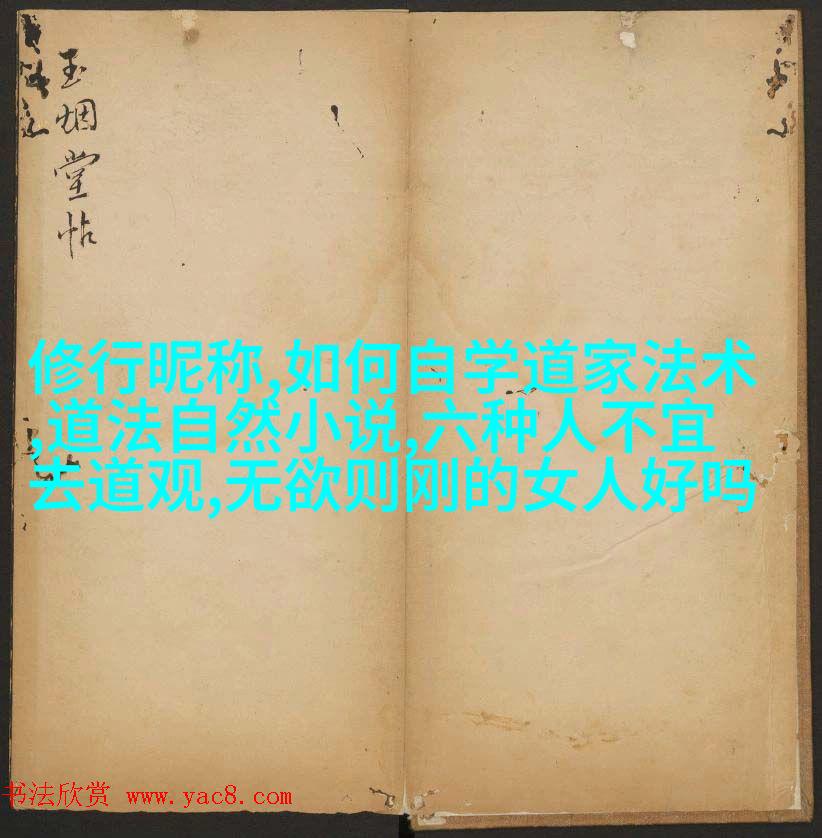 玉烟堂帖
修行昵称,如何自学道家法术
,道法自然小说,六种人不宜
去道观,无欲则刚的女人好吗
书法欣赏 www.yac8.com